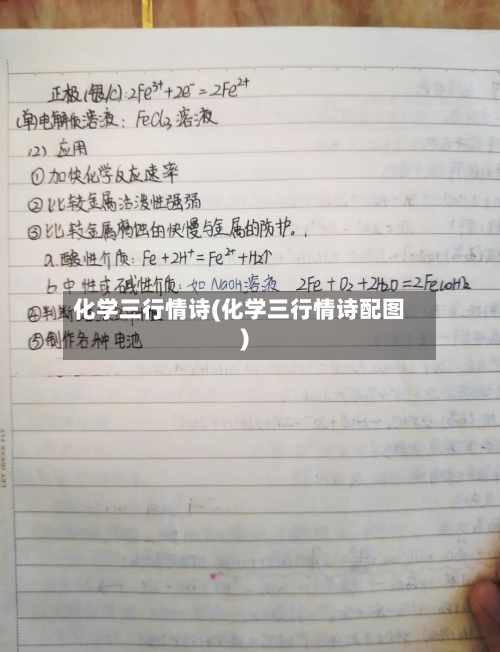 正极(银/C):2Fe³⁺+2e⁻=2Fe²⁺
(单)电解质溶液：FeCl₃溶液
(2) 应用
①加快化学反应速率
②比较金属活泼性强弱
③比较金属腐蚀的快慢与金属的防护。
a.酸性介质：Fe+2H⁺=Fe²⁺+H₂↑
b.中性或碱性介质：如NaOH溶液 2Fe+O₂+2H₂O=2Fe(OH)₂
化学三行情诗(化学三行情诗配图
)
④判断
⑤制作各种电池